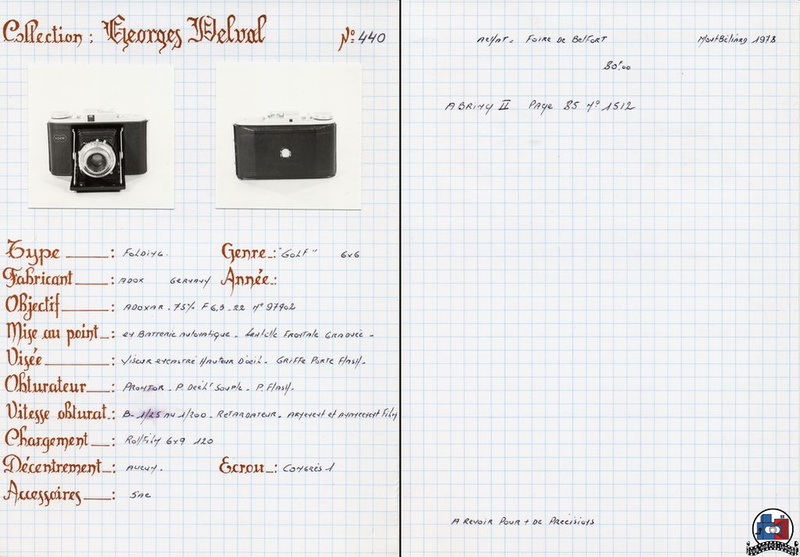 Collection : Georges Delval
N° 440
Type : Folding.
Genre : "Golf" 6x6
Fabricant : Adox Germany
Année :
Objectif : Adoxar . 75% F 6,3 . 22 n° 97902
Mise au point : en Batterie automatique . Lentille Frontale Graduée .
Visée : Viseur encastré Hauteur D'oeil . Griffe Porte Flash .
Obturateur : Prontor . P. Decht Souple . P. Flash .
Vitesse obturat. : B . 1/25 au 1/200 . Retardateur . Armement et Avancement Film
Chargement : Rollfilm 6x9 120
Décentrement : Aucun .
Ecrou : Congrès 1
Accessoires : Sac
Achat . Foire de Belfort Montbéliard 1978
80F00
Abring II Page 85 n° 1512
A Revoir Pour + de Précisions